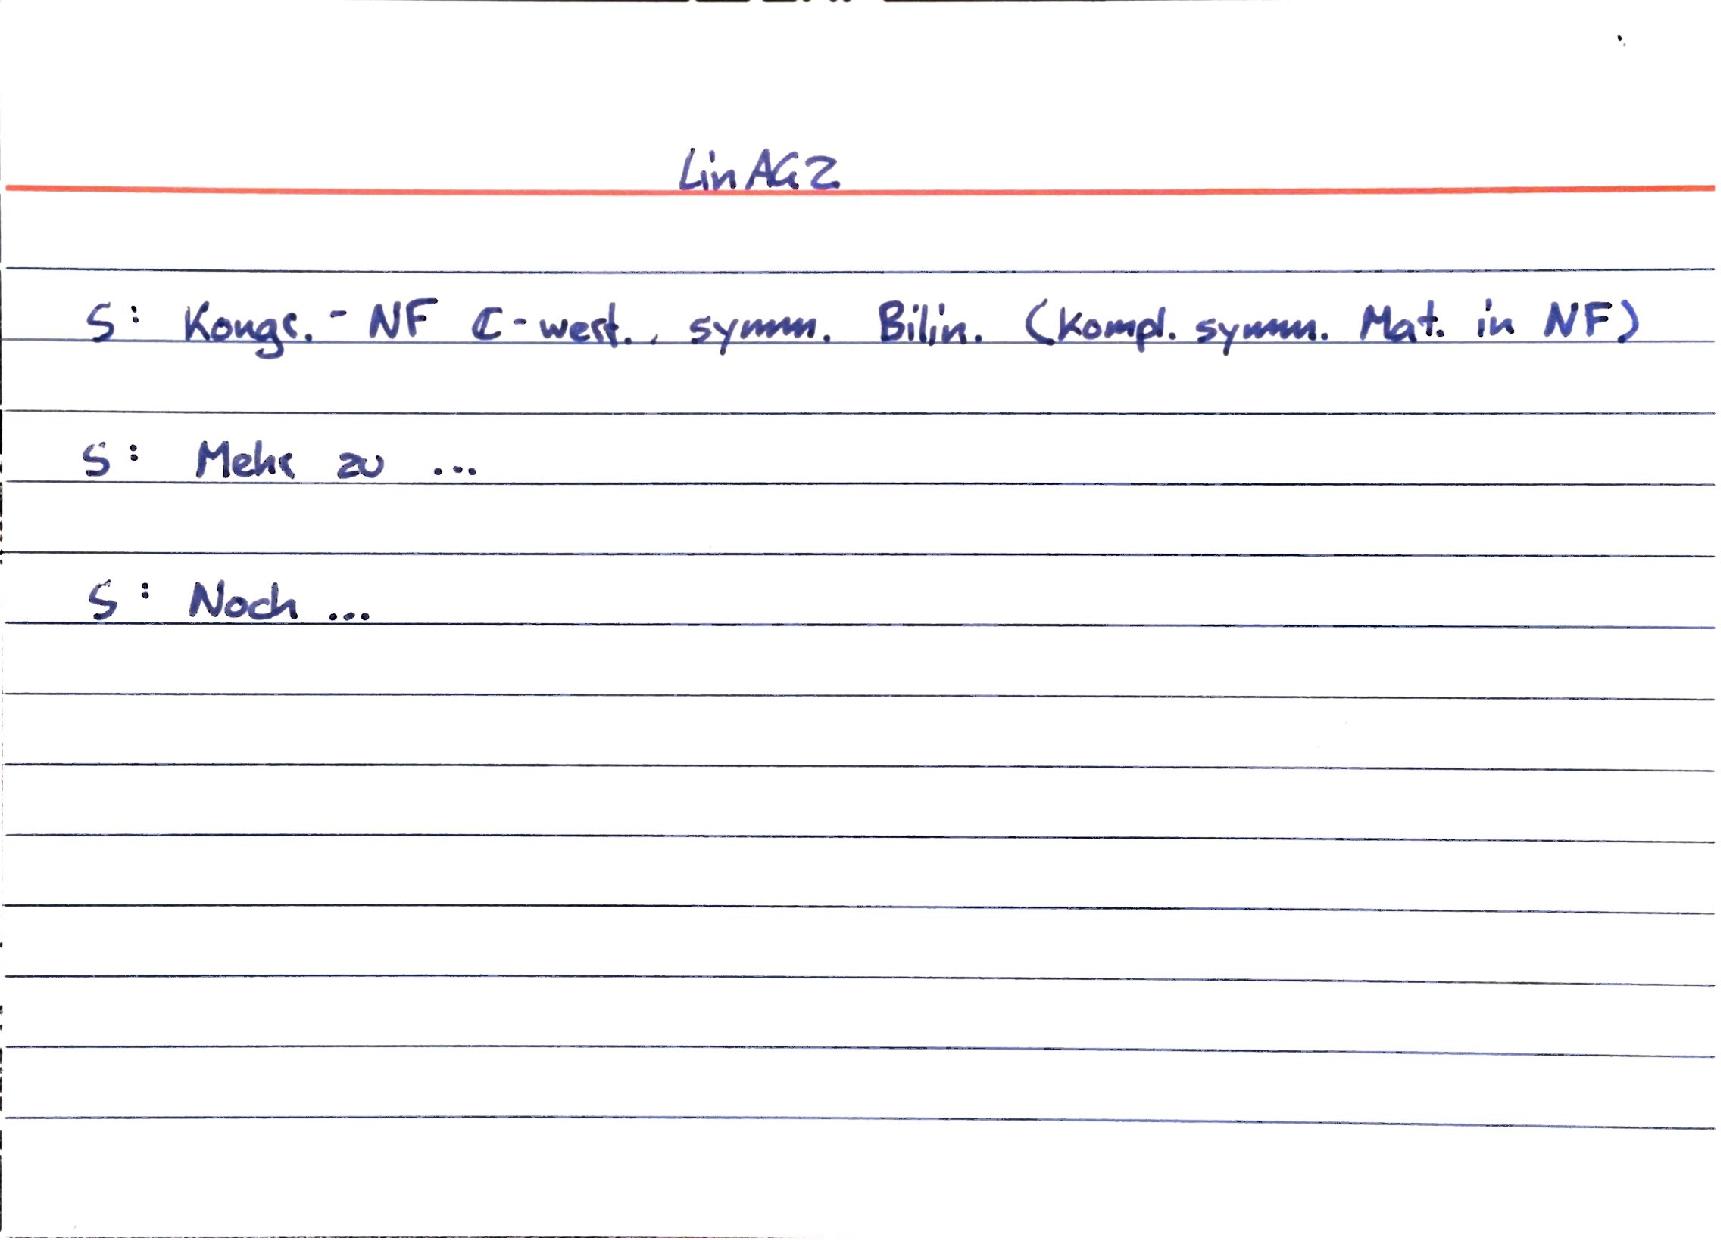 LinAG2
S: Kongr.-NF ℂ-wert., symm. Bilin. (kompl. symm. Mat. in NF)
S: Mehr zu ...
S: Noch ...